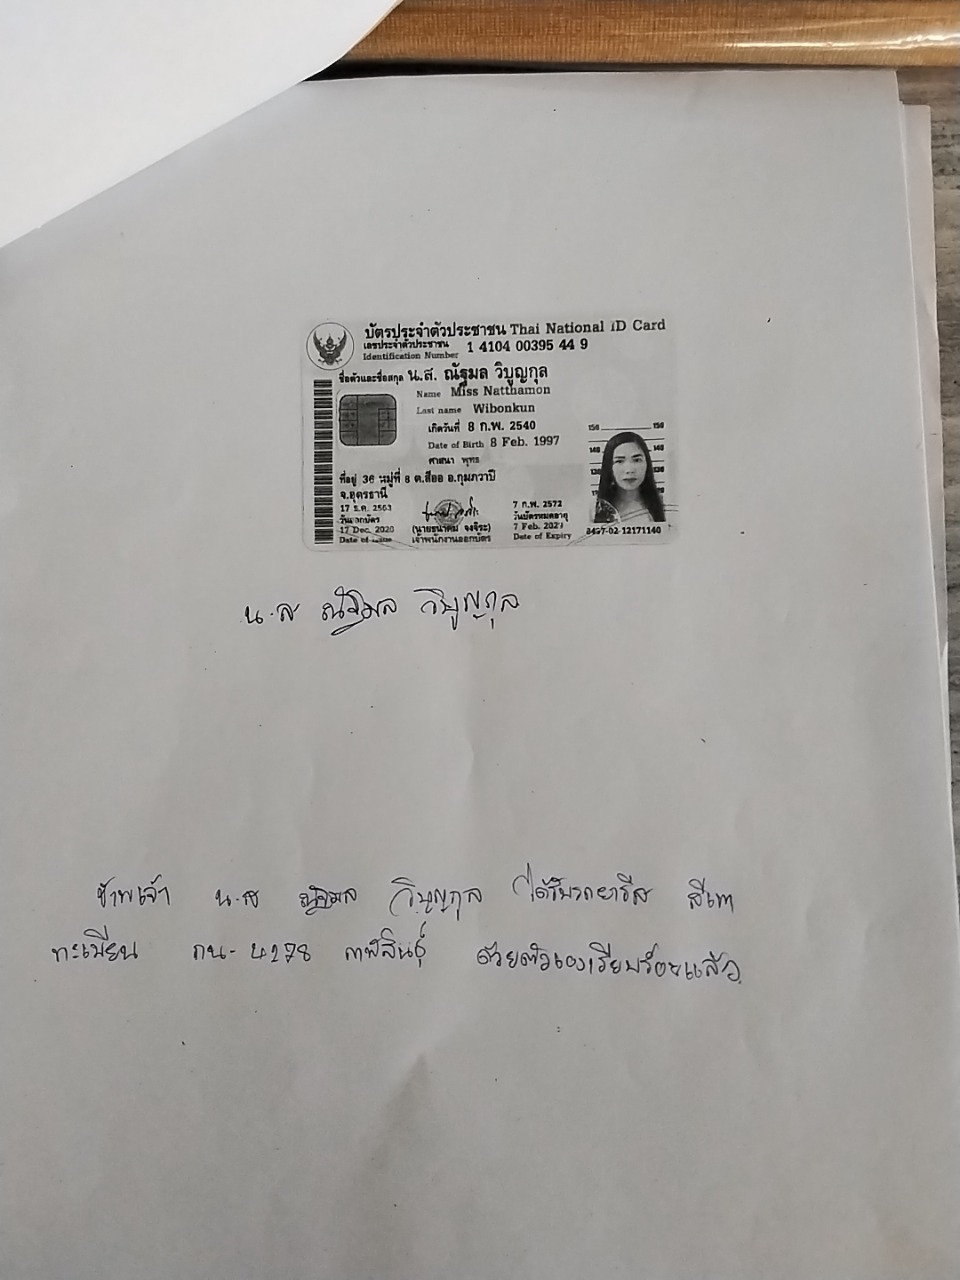 บัตรประจำตัวประชาชน Thai National ID Card
เลขประจำตัวประชาชน
Identification Number 1 4104 00395 44 9
ชื่อตัวและชื่อสกุล น.ส. ณัฐมล วิบูญกุล
Name Miss Natthamon
Last name Wibonkun
เกิดวันที่ 8 ก.พ. 2540
Date of Birth 8 Feb. 1997
ศาสนา พุทธ
ที่อยู่ 36 หมู่ที่ 8 ต.สีออ อ.กุมภวาปี
จ.อุดรธานี
17 ธ.ค. 2563
วันออกบัตร
17 Dec. 2020
Date of Issue
เจ้าพนักงานออกบัตร
7 ก.พ. 2572
วันบัตรหมดอายุ
7 Feb.
Date of Expiry
150 150
140 140
130 130
12171140
น.ส ณัฐมล วิบูญกุล
ข้าพเจ้า น.ส ณัฐมล วิบูญกุล ได้รับรถยารีส สีเทา
ทะเบียน กน-4278 กาฬสินธุ์ ด้วยตัวเองเรียบร้อยแล้ว